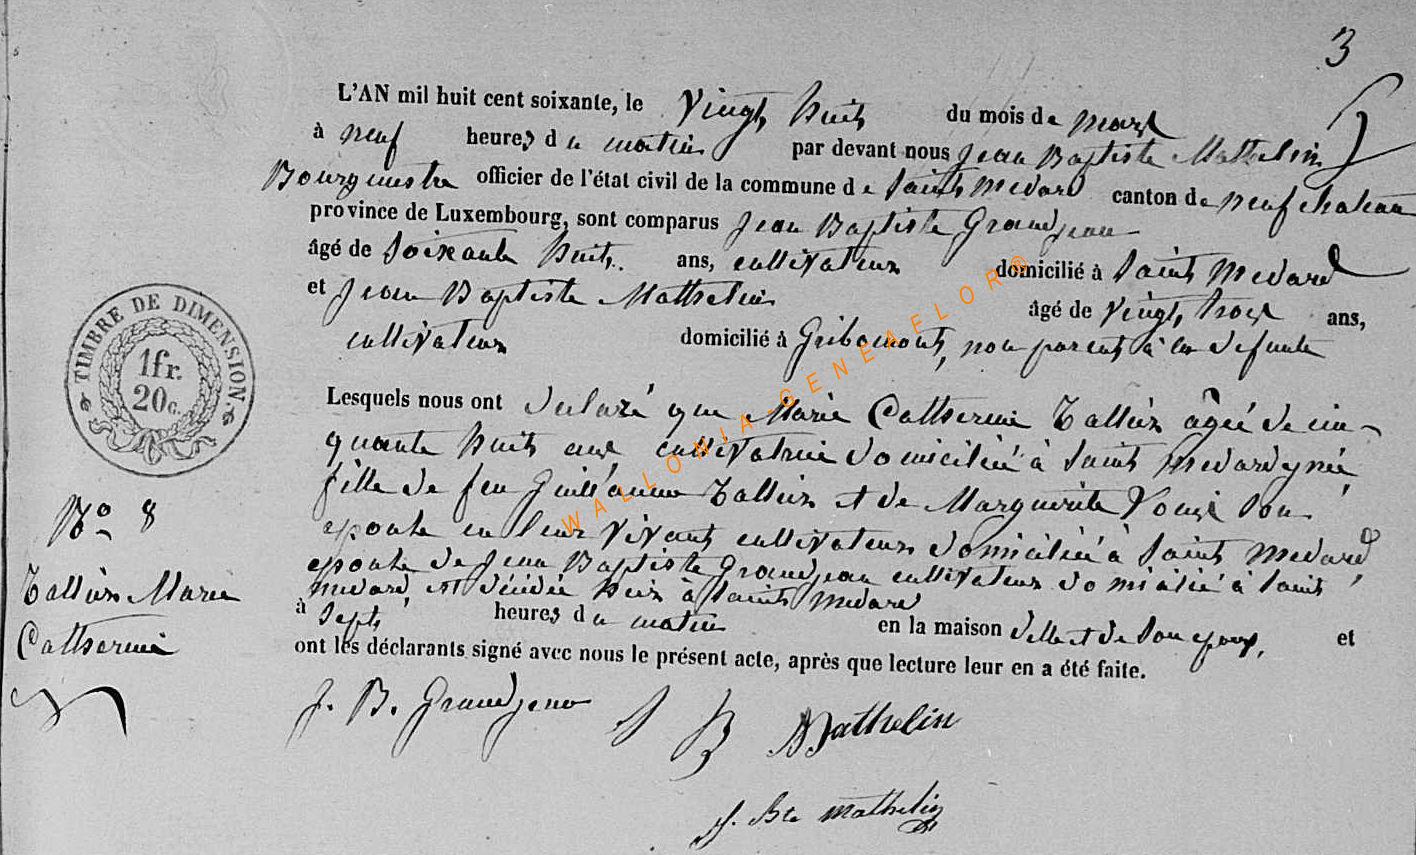 3
L'AN mil huit cent soixante, le vingt huit du mois de mars
à neuf heures du matin par devant nous Jean Baptiste Mathelin
Bourgmestre officier de l'état civil de la commune de Saint Medard canton de neufchateau
province de Luxembourg, sont comparus Jean Baptiste Grandjean
âgé de Soixante huit ans, cultivateur domicilié à Saint Medard
et Jean Baptiste Mathelin âgé de vingt trois ans,
cultivateur domicilié à Gribomont, non parent à la defunte
Lesquels nous ont declaré que Marie Catherine Tallier âgée de cin-
quante huit ans cultivatrice domiciliée à Saint Medard, née
fille de feu Guillaume Tallier et de Marguerite son
epouse en leur vivant cultivateurs domiciliés à Saint Medard
epouse de Jean Baptiste Grandjean cultivateur domicilié à Saint
Medard, est décédée hier à Saint Medard
à Sept heures du matin en la maison d'elle et de son epoux, et
ont les déclarants signé avec nous le présent acte, après que lecture leur en a été faite.
TIMBRE DE DIMENSION
1fr.
20c.
No 8
Tallier Marie
Catherine
J. B. Grandjean J B Mathelin
J. Bte mathelin
WALLONIA-GENEAFLOR®